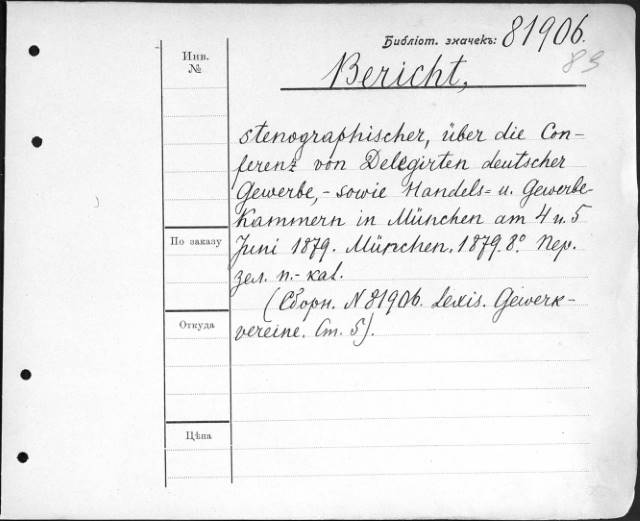 Библіот. значекъ: 81906.
83
Инв. №
Bericht,
stenographischer, über die Con-
ferenz von Delegirten deutscher
Gewerbe,- sowie Handels= u. Gewerbe-
Kammern in München am 4 u. 5
Juni 1879. München. 1879. 8º. Пер.
зел. п.- кал.
(Сборн. N 81906. Lexis. Gewerk-
vereine. Ст. 5).
По заказу
Откуда
Цѣна